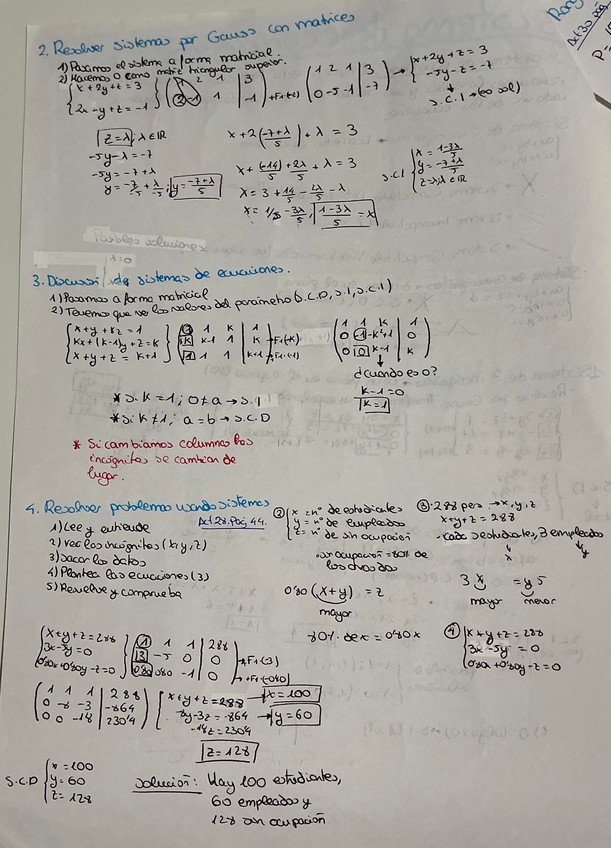 2. Resolver sistemas por Gauss con matrices
1) Pasamos el sistema a forma matricial.
2) Hacemos 0 como matriz triangular superior.
{x+2y+z=3
2x-y+z=-1} (1 2 1 | 3
2 -1 1 | -1) +F1·(-2) (1 2 1 | 3
0 -5 -1 | -7) → {x+2y+z=3
-5y-z=-7
↓
S.C.I → (∞ sol)
z=λ, λ∈ℝ
-5y-λ=-7
-5y=-7+λ
y=-7/-5+λ/-5; y=-7+λ/5
x+2(-7+λ/5)+λ=3
x+(-14)/5+2λ/5+λ=3
x=3+14/5-2λ/5-λ
x=1/5-3λ/5, 1-3λ/5=x
S.C.I {x=1-3λ/5
y=-7+λ/5
z=λ; λ∈ℝ
3. Discusión de sistemas de ecuaciones.
1) Pasamos a forma matricial
2) Tenemos que ver los valores del parámetro (S.C.D, S.I, S.C.I)
{x+y+kz=1
kx+(k-1)y+z=k
x+y+z=k+1} (1 1 k | 1
k k-1 1 | k
1 1 1 | k+1) +F1·(-k)
+F1·(-1)
(1 1 k | 1
0 -1 -k²+1 | 0
0 0 k-1 | k)
↓
¿Cuando es 0?
k-1=0
k=1
* Si k=1; 0≠a → S.I
* Si k≠1; a=b → S.C.D
* Si cambiamos columnas las
incógnitas se cambian de
lugar.
4. Resolver problemas usando sistemas
Act 28. Pág. 44.
1) Lee y entiende
2) Ver las incógnitas (x,y,z)
3) Sacar los datos
4) Plantea las ecuaciones (3)
5) Resuelve y comprueba
② {x = nº de estudiantes
y = nº de empleados
z = nº de sin ocupación
· sin ocupación = 80% de
los otros dos
0'80 (x+y) = z
mayor
80% de x = 0'80x
③ · 288 pers → x,y,z
x+y+z=288
· cada 5 estudiantes, 3 empleados
x y
3x = y5
mayor menor
④ {x+y+z=288
3x-5y=0
0'80x+0'80y-z=0
{x+y+z=288
3x-5y=0
0'80x+0'80y-z=0} (1 1 1 | 288
3 -5 0 | 0
0'80 0'80 -1 | 0) → +F1·(-3)
→ +F1·(-0'80)
(1 1 1 | 288
0 -8 -3 | -864
0 0 -1'8 | 230'4) [x+y+z=288 → x=100
-8y-3z=-864 → y=60
-1'8z=230'4
z=128
S.C.D {x=100
y=60
z=128
Solución: Hay 100 estudiantes,
60 empleados y
128 sin ocupación